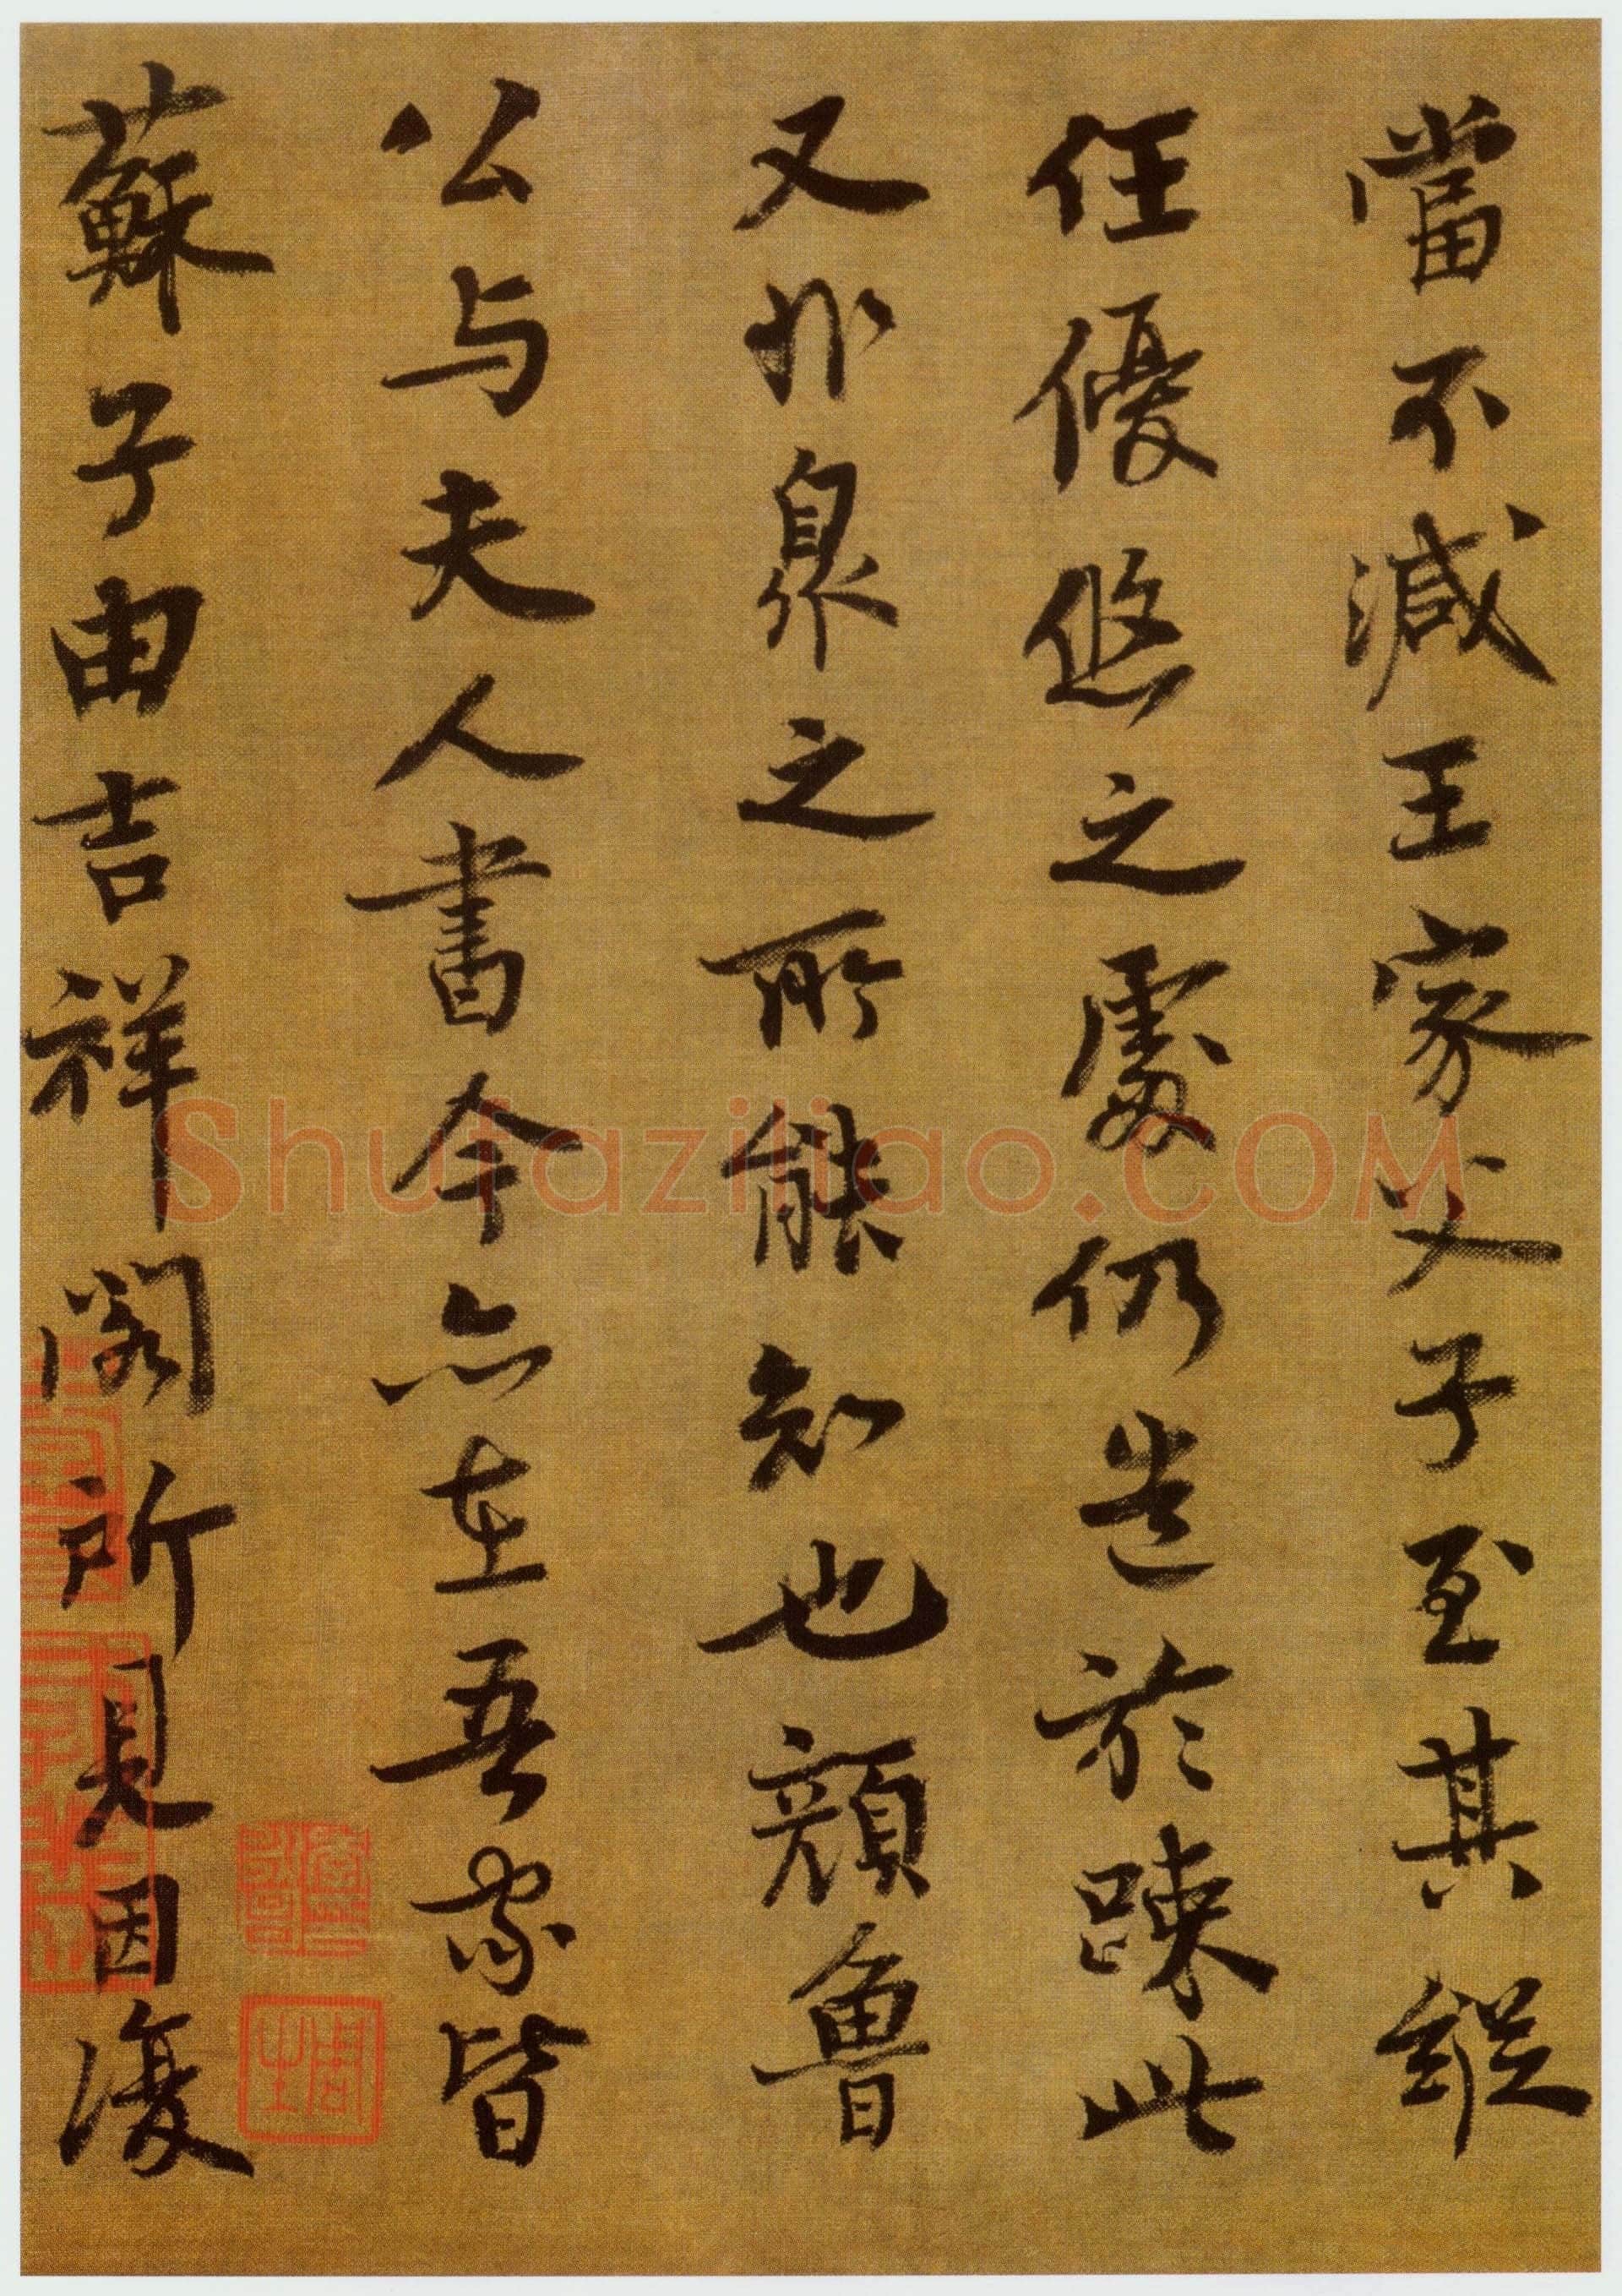 當不減王家父子至其縱
任優悠之處仍造於疎此
又非衆之所能知也顔魯
公与夫人書今亦在吾家皆
蘇子由吉祥閣所見因復
Shufaziliao.COM